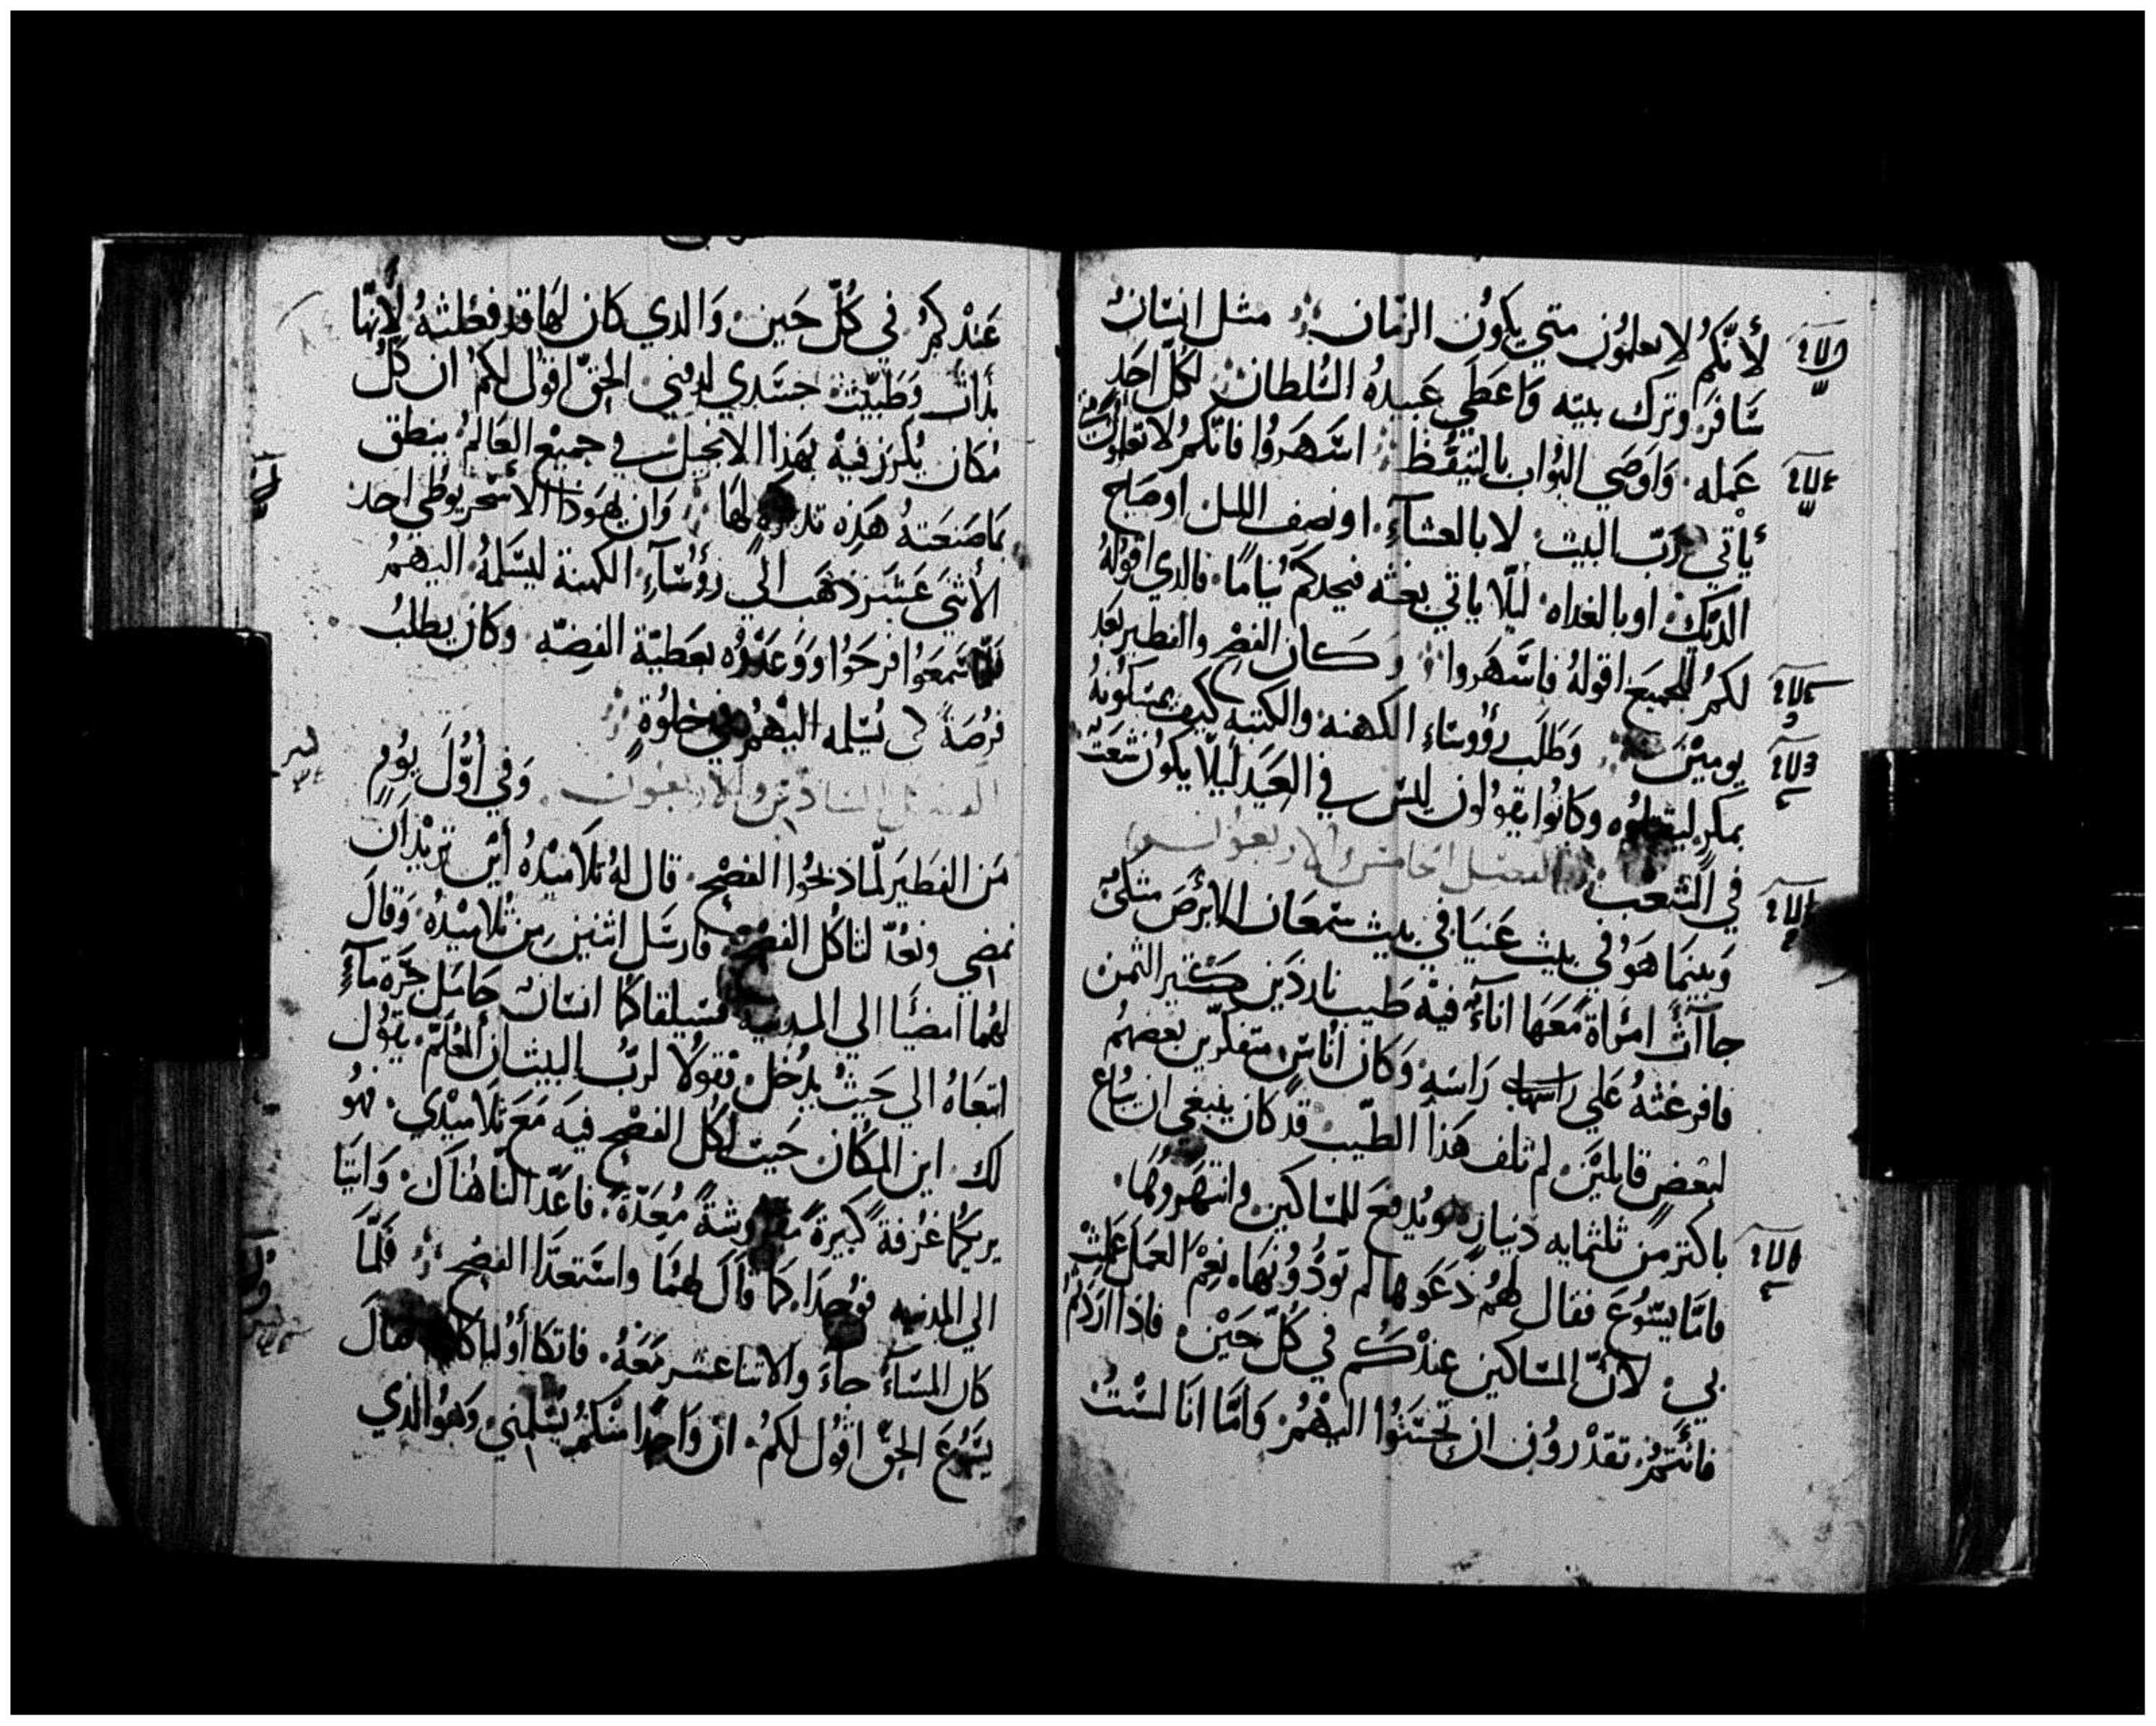 لأنّكم لا تعلمون متي يكون الزمان مثل انسان
سَافر وترك بيته وَاعطي عبيدهُ السُلطان لكل احد
عَمله وَاوصي البوّاب بالتيقّظ اسهَروا فانكم لا تعلمون
يأتي ربّ البيت لا بالعشآء او نصف الليل او صياح
الديك او بالغداه ليلّا ياتي بغته فيجدكم نيامًا فالدي اقوله
لكم للجميع اقولهُ فاسهَروا وَكان الفصح والفطير بَعد
يومين وَطلَب رؤوسَاء الكهنه والكتبه كيف يمسكونهُ
بمكرٍ ليقتلوه وكانوا يقولون ليس في العيد ليلّا يكون شغَب
في الشعب الفصل الخامس والاربعون
وَبينما هوَ في بيت عَنيا في بيت سمعَان الابرَص متكئ
جاآت امراة مَعَها انآءٌ فيه طيب ناردَين كتير التمن
فافرغتهُ عَلي راسه وَكان اُناسٌ متفكرّين بعضهم
لبعض قايلين لم تلف هَذا الطيب قد كان ينبغي ان يُباع
باكتر من ثلثمايه دينارٍ ويُدفعَ للمسَاكين وانتهَروهَا
فامّا يسُوع فقال لهم دَعَوهَا لم تودُوُنهَا نِعْمَ العمل عملت
بي لانّ المسَاكين عندكم في كلّ حين فاذا اردتم
فانتم تقدرون ان تحسَنُوا اليهم وَامّا انَا لستُ
عَندكم في كُلّ حَين وَالدي كان لهَا قد فعلتهُ لانهّا
بدات وَطَيّبت جسَدي لدفني الحقّ اقول لكم ان كل
مكان يكرز فيه بهَذا الانجيل في جميع العَالم ينطق
بمَا صنَعَتهُ هَذِه لهَا وَان يهوَذا الاسخريوطي احد
الأثني عَشر ذهَب الي رؤسَآءِ الكهنة ليسَلمهُ اليهم
فلمّا سَمعَوُا فرحَوُا وَوَعَدُوه بعَطيّة الفضّه وكان يطلبُ
فرُصَةً لكي يُسَلمه اليهم في خلوُة
الفصل السَادس والاربعون وَفي أوّل يوُم
مَن الفطَير لمّا ذبحُوا الفصح قال لهُ تلاميذهُ أين تريدان
نمضي ونعُدّ لتاكُل الفصح فارسَل اثنين مِن تلاميذه وَقالَ
لهُما امضَيا الي المدينه فسَيلقاكما انسَان حَامَل جَرّة مآءٍ
اتبعَاهُ الي حَيثُ يدُخل وَقولا لربّ البيت ان المُعلّم يقول
لك اين المكان حَيث اكل الفصح فيه مَعَ تلاميذي فهُو
يريكما غرُفةً كبيرةً مفروشةً مُعدّةً فاعَدّا لنا هُناك وَاتيَا
الي المدينه فوُجَدَا كما قالَ لهمَا واستعدّا الفصح فلمّا
كان المسَآءُ جآءَ والاتنا عشر مَعَهُ فاتكا أوليك قالَ
يسُوعَ الحقّ اقوُل لكم ان وَاحدًا منكم يسْلمني وَهوُ الدي